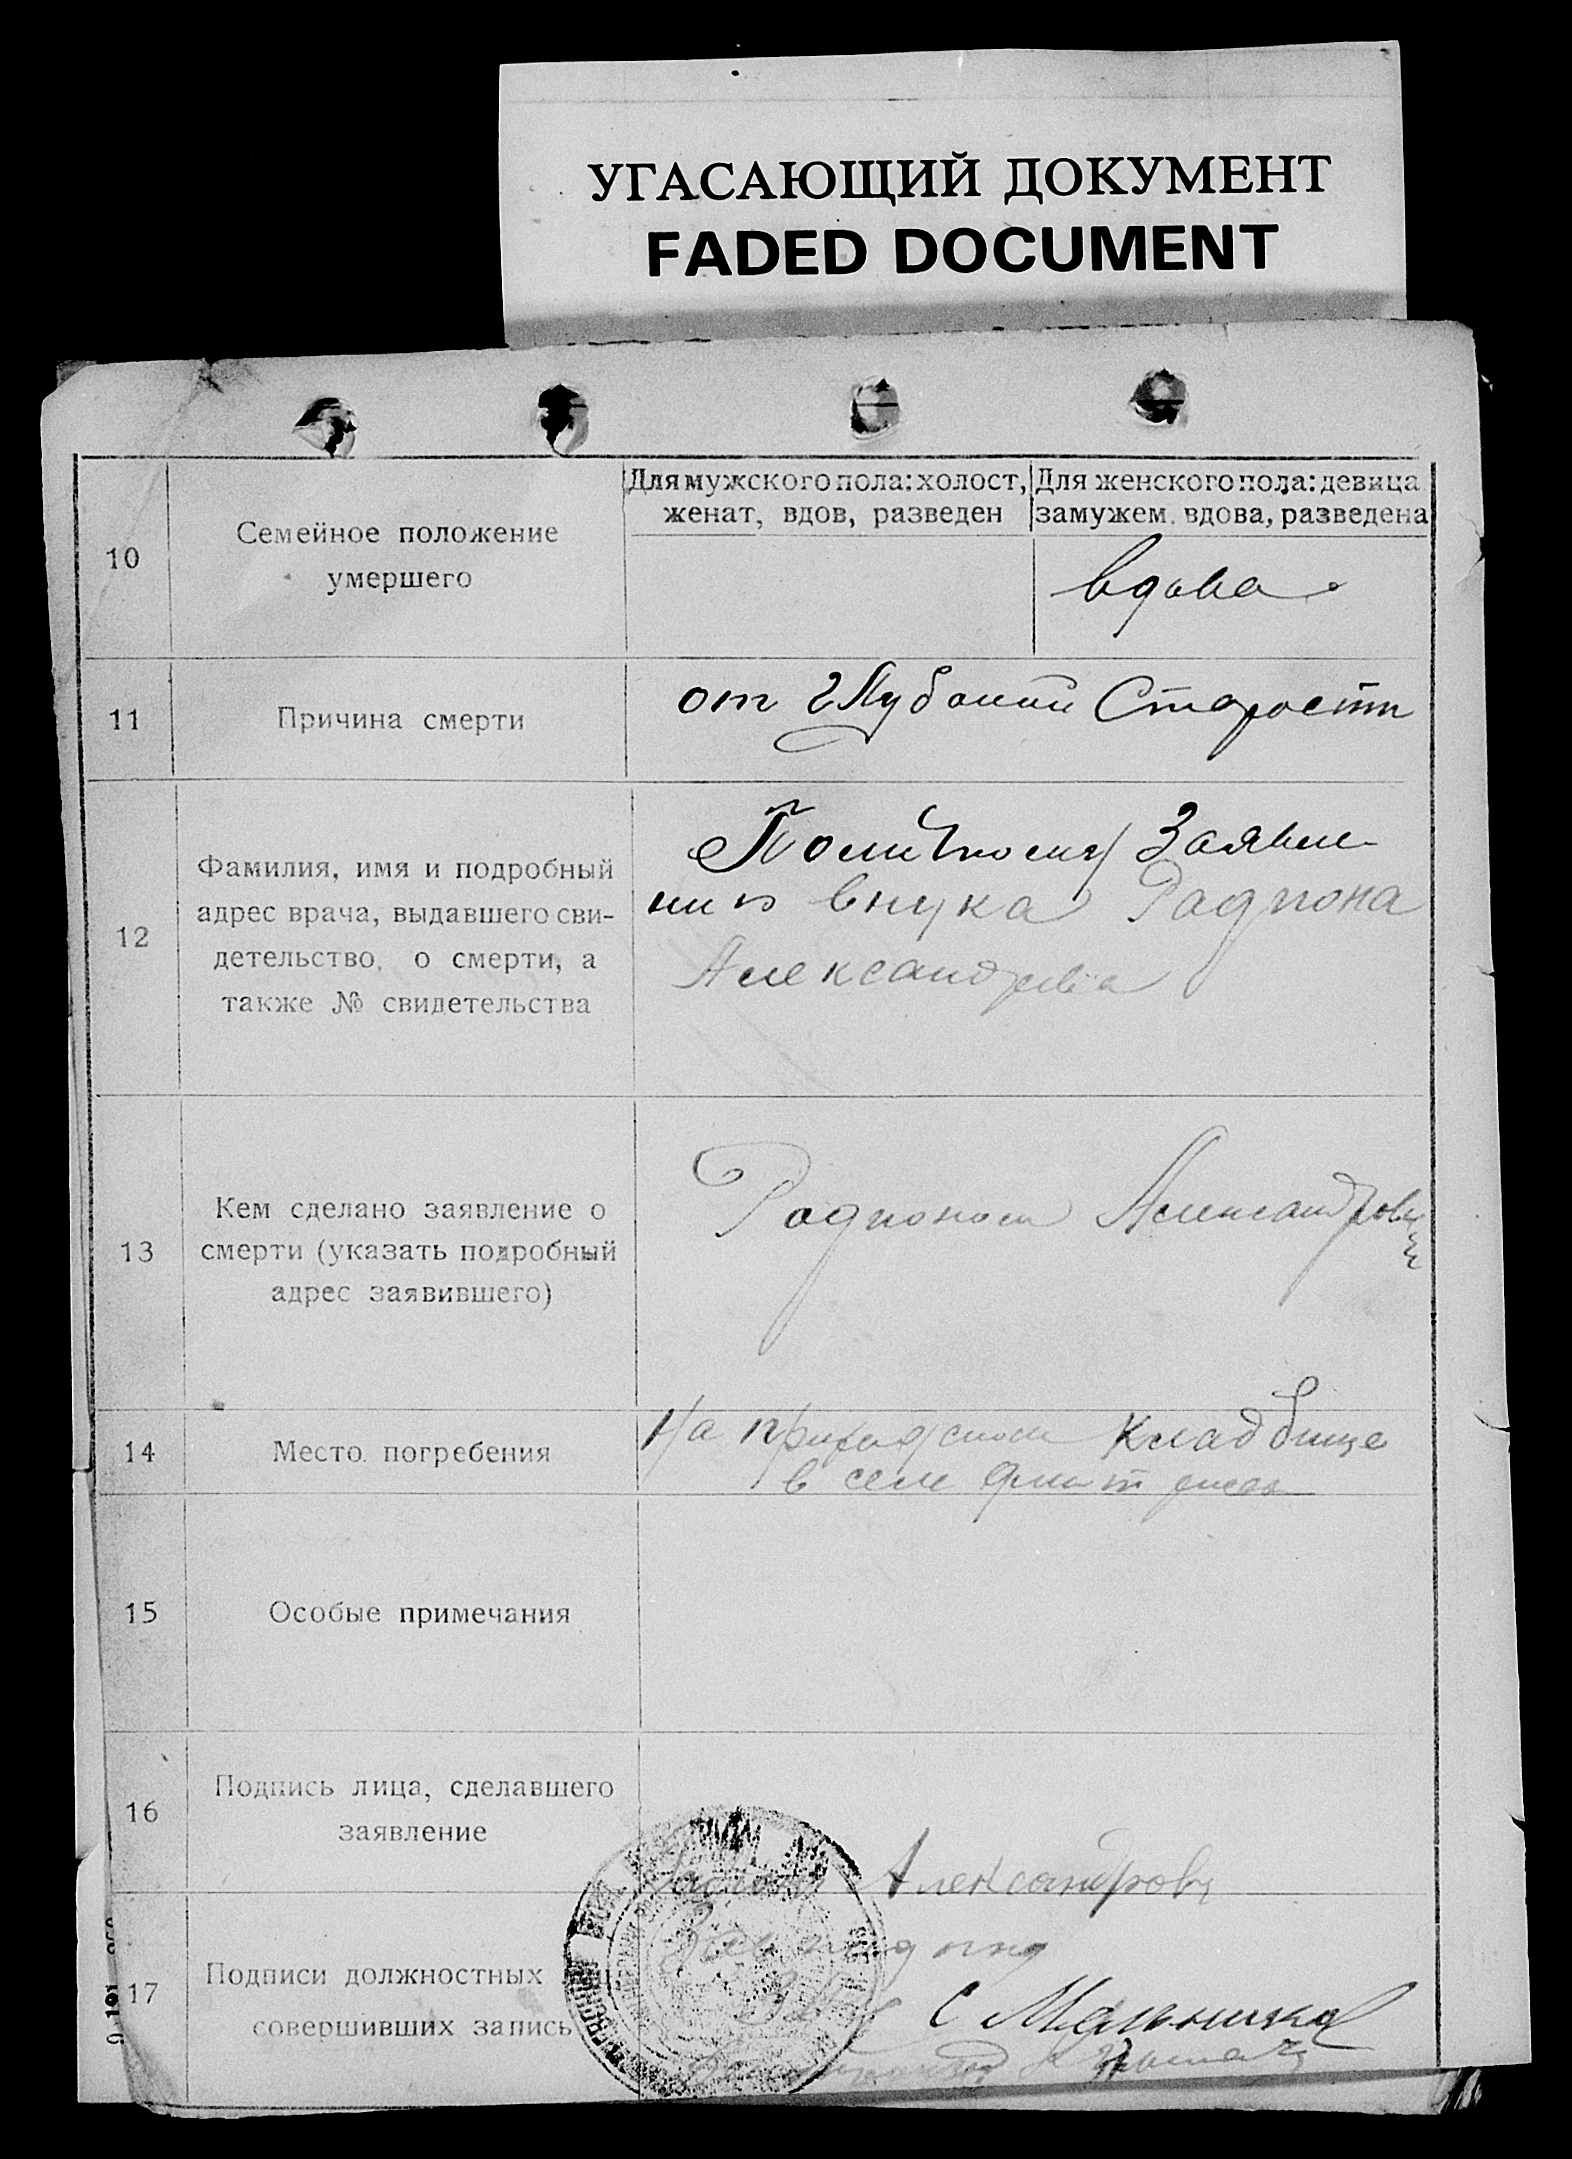 УГАСАЮЩИЙ ДОКУМЕНТ
FADED DOCUMENT
10
Семейное положение
умершего
Для мужского пола: холост,
женат, вдов, разведен
Для женского пола: девица
замужем, вдова, разведена
вдова
11
Причина смерти
от глубокой Старости
12
Фамилия, имя и подробный
адрес врача, выдавшего сви-
детельство, о смерти, а
также № свидетельства
По личному Заявле-
нию внука Радиона
Александрова
13
Кем сделано заявление о
смерти (указать подробный
адрес заявившего)
Радионом Александровы
14
Место погребения
На приходском кладбище
в селе
15
Особые примечания
16
Подпись лица, сделавшего
заявление
Александров
17
Подписи должностных лиц,
совершивших запись
С